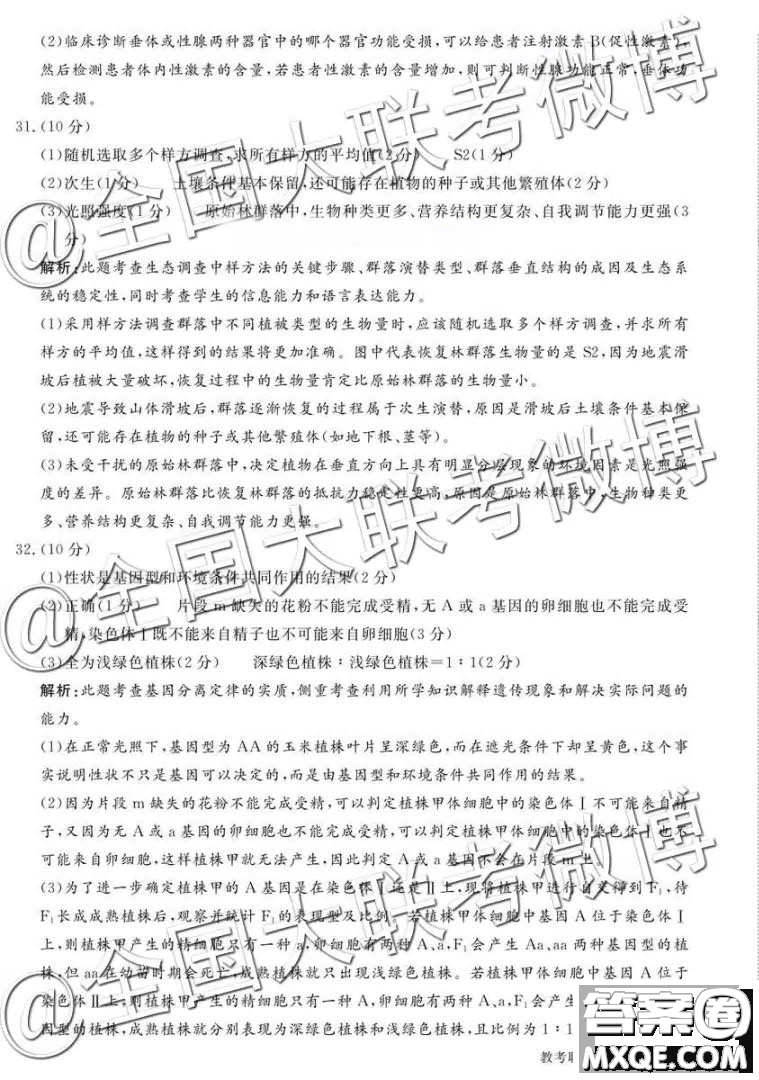 (2)临床诊断垂体或性腺两种器官中的哪个器官功能受损,可以给患者注射激素B(促性激素),
然后检测患者体内性激素的含量,若患者性激素的含量增加,则可判断性腺功能正常,垂体功
能受损。
31.(10分)
(1)随机选取多个样方调查,求所有样方的平均值(2分) S2(1分)
(2)次生(1分) 土壤条件基本保留,还可能存在植物的种子或其他繁殖体(2分)
(3)光照强度(1分) 原始林群落中,生物种类更多、营养结构更复杂、自我调节能力更强(3
分)
解析:此题考查生态调查中样方法的关键步骤、群落演替类型、群落垂直结构的成因及生态系
统的稳定性,同时考查学生的信息能力和语言表达能力。
(1)采用样方法调查群落中不同植被类型的生物量时,应该随机选取多个样方调查,并求所有
样方的平均值,这样得到的结果将更加准确。图中代表恢复林群落生物量的是S2,因为地震滑
坡后植被大量破坏,恢复过程中的生物量肯定比原始林群落的生物量小。
(2)地震导致山体滑坡后,群落逐渐恢复的过程属于次生演替,原因是滑坡后土壤条件基本保
留,还可能存在植物的种子或其他繁殖体(如地下根、茎等)。
(3)未受干扰的原始林群落中,决定植物在垂直方向上具有明显分层现象的环境因素是光照强
度的差异。原始林群落比恢复林群落的抵抗力稳定性更高,原因是原始林群落中,生物种类更
多、营养结构更复杂、自我调节能力更强。
32.(10分)
(1)性状是基因型和环境条件共同作用的结果(2分)
(2)正确(1分) 片段m缺失的花粉不能完成受精,无A或a基因的卵细胞也不能完成受
精,染色体Ⅰ既不能来自精子也不可能来自卵细胞(3分)
(3)全为浅绿色植株(2分) 深绿色植株:浅绿色植株=1:1(2分)
解析:此题考查基因分离定律的实质,侧重考查利用所学知识解释遗传现象和解决实际问题的
能力。
(1)在正常光照下,基因型为AA的玉米植株叶片呈深绿色,而在遮光条件下却呈黄色,这个事
实说明性状不只是基因可以决定的,而是由基因型和环境条件共同作用的结果。
(2)因为片段m缺失的花粉不能完成受精,可以判定植株甲体细胞中的染色体Ⅰ不可能来自精
子,又因为无A或a基因的卵细胞也不能完成受精,可以判定植株甲体细胞中的染色体Ⅰ也不
可能来自卵细胞,这样植株甲就无法产生,因此判定A或a基因不会在片段m上。
(3)为了进一步确定植株甲的A基因是在染色体Ⅰ还是Ⅱ上,现将植株甲进行自交得到F₁,待
F₁长成成熟植株后,观察并统计F₁的表现型及比例。若植株甲体细胞中基因A位于染色体Ⅰ
上,则植株甲产生的精细胞只有一种a,卵细胞有两种A、a,F₁会产生Aa、aa两种基因型的植
株,但aa在幼苗时期会死亡,成熟植株就只出现浅绿色植株。若植株甲体细胞中基因A位于
染色体Ⅱ上,则植株甲产生的精细胞只有一种A,卵细胞有两种A、a,F₁会产生
因型的植株,成熟植株就分别表现为深绿色植株和浅绿色植株,且比例为1:1
教考联
@全国大联考微博
@全国大联考微博
@全国大联考微博
答案圈
MXQE.COM